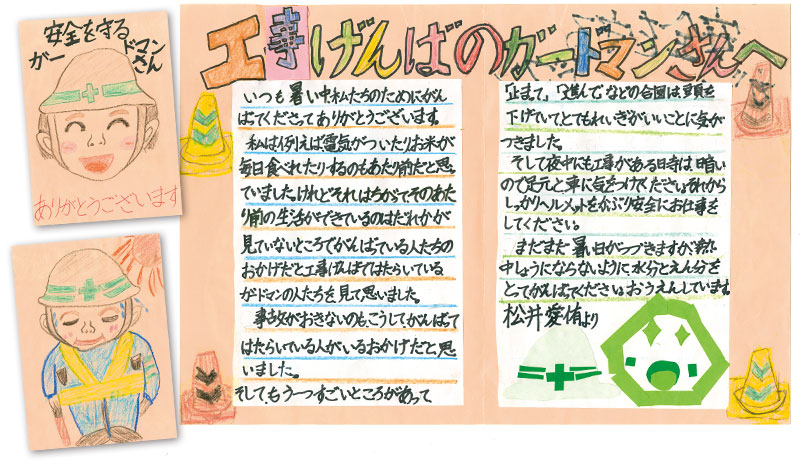 安全を守る
ガードマン
さん
ありがとうございます
工事げんばのガードマンさんへ
いつも暑い中私たちのためにがん
ばてくださってありがとうございます。
私は例えば電気がついたりお米が
毎日食べれたりするのもあたり前だと思っ
ていました。けれどそれはちがって、そのあた
り前の生活ができているのはだれかが
見ていないところでがんばっている人たちの
おかげだと工事げんばではたらいている
ガードマンの人たちを見て思いました。
事故がおきないのも、こうしてがんばって
はたらいている人がいるおかげだと思
いました。
そして、もう一つすごいところがあって
「止まって」「進んで」などの合図は頭を
下げていてとてもれいぎがいいことに気が
つきました。
そして夜中にも工事がある日寺は暗い
ので足元と車に気をつけてください。それから
しっかりヘルメットをかぶり安全にお仕事を
してください。
まだまだ暑い日がつづきますが、熱
中しょうにならないように水分とえん分を
とってがんばってください。おうえんしています。
松井愛侑より